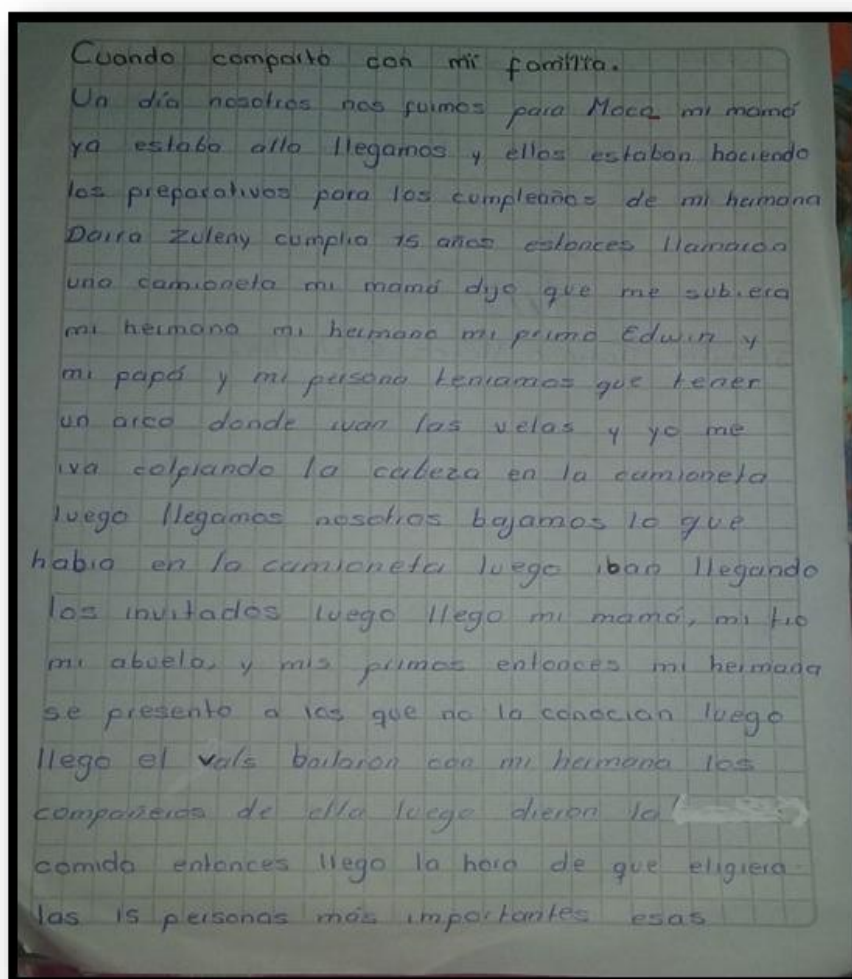 Cuando comparto con mi familia.
Un día nosotros nos fuimos para Moca mi mamá
ya estaba alla llegamos y ellos estaban haciendo
los preparativos para los cumpleaños de mi hemana
Daira Zuleny cumplio 15 años estonces llamaron
una camioneta mi mamá dijo que me subiera
mi hermana mi hermano mi primo Edwin y
mi papá y mi persona teniamos que tener
un arco donde ivan las velas y yo me
iva colpiando la cabeza en la camioneta
luego llegamos nosotros bajamos lo que
habia en la camioneta luego iban llegando
los invitados luego llego mi mamá, mi tio
mi abuela, y mis primos entonces mi hermana
se presento a los que no la conocian luego
llego el vals bailaron con mi hermana los
compañeros de ella luego dieron la
comida entonces llego la hora de que eligiera
las 15 personas más importantes esas